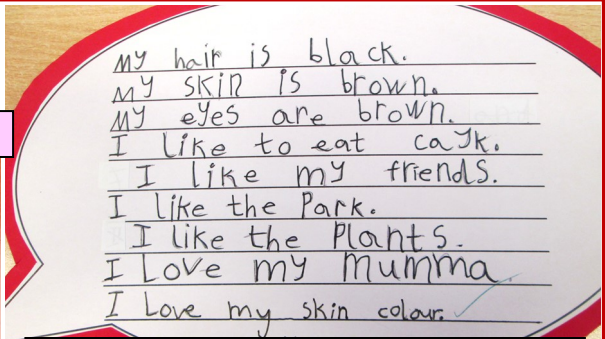 My hair is black.
My skin is brown.
My eyes are brown.
I like to eat cayk.
I like my friends.
I like the Park.
I like the Plants.
I Love my Mumma
I Love my skin colour.